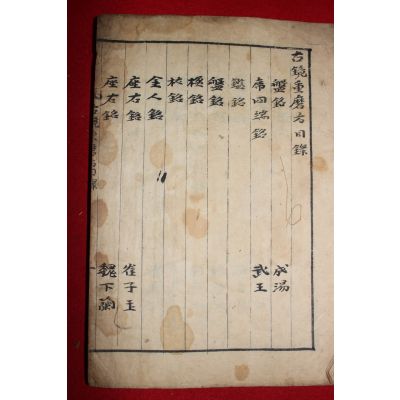 古鏡重磨方目錄
盤銘 成湯
席四端銘 武王
鑑銘
盤銘
楹銘
杖銘
金人銘
座右銘 崔子玉
座右銘 魏卞蘭